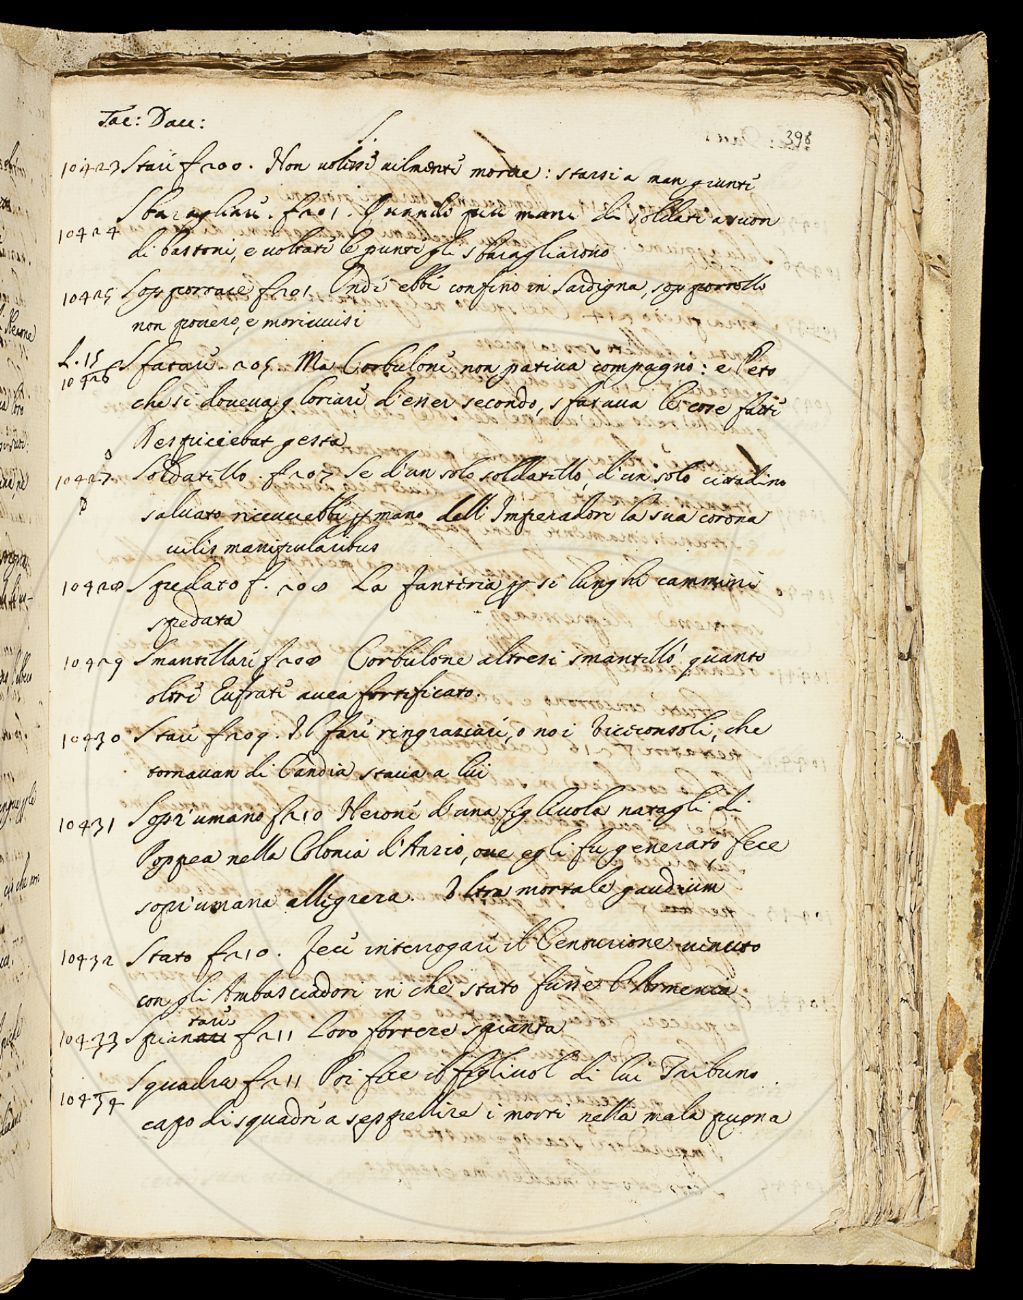 Tac: Dau:
S.
398
10423 Stare f 200. Non volesse vilmente morire: starsi a man giunte
10424 Sbaragliare. f 201. Quando più mani di soldati a suon
di bastoni, e voltate le punte gli sbaragliarono
10425 Sopportare f 201. Onde ebbe confino in Sardigna, sopportollo
non povero, e morivvisi
L. 15
10426 Sfatare. 205. Ma Corbulone non pativa compagno: e Peto
che si doveva gloriare d'esser secondo, sfatava le cose fatte
Despiciebat gesta
10427 Soldatello. f 207 Se d'un solo soldatello, d'un solo cittadino
salvato ricevcebbe p mano dell'Imperadore la sua corona
vilis manipularibus
10428 Spedato f. 208 La fanteria p si lunghi cammini
spedata
10429 Smantellare f 208 Corbulone altresi smantellò quanto
oltre Eufrate avea fortificato.
10430 Stare f 209. Il fare ringraziare, o no i Viceconsoli, che
tornavan di Candia stava a lui
10431 Sopr'umano f 210 Nerone d'una figlivola natagli di
Poppea nella Colonia d'Anzio, ove egli fu generato fece
sopr'umana allegreza. Ultra mortale gaudium
10432 Stato f 210. Fece interrogare il Centurione venuto
con gli Ambasciadori in che stato fusse l'Armenia
10433 Spiantare f 211 Loro forteze spianta
10434 Squadra f 211 Poi fece il figlivol di lui Tribuno
capo di squadre a seppellire i morti nella mala pugna